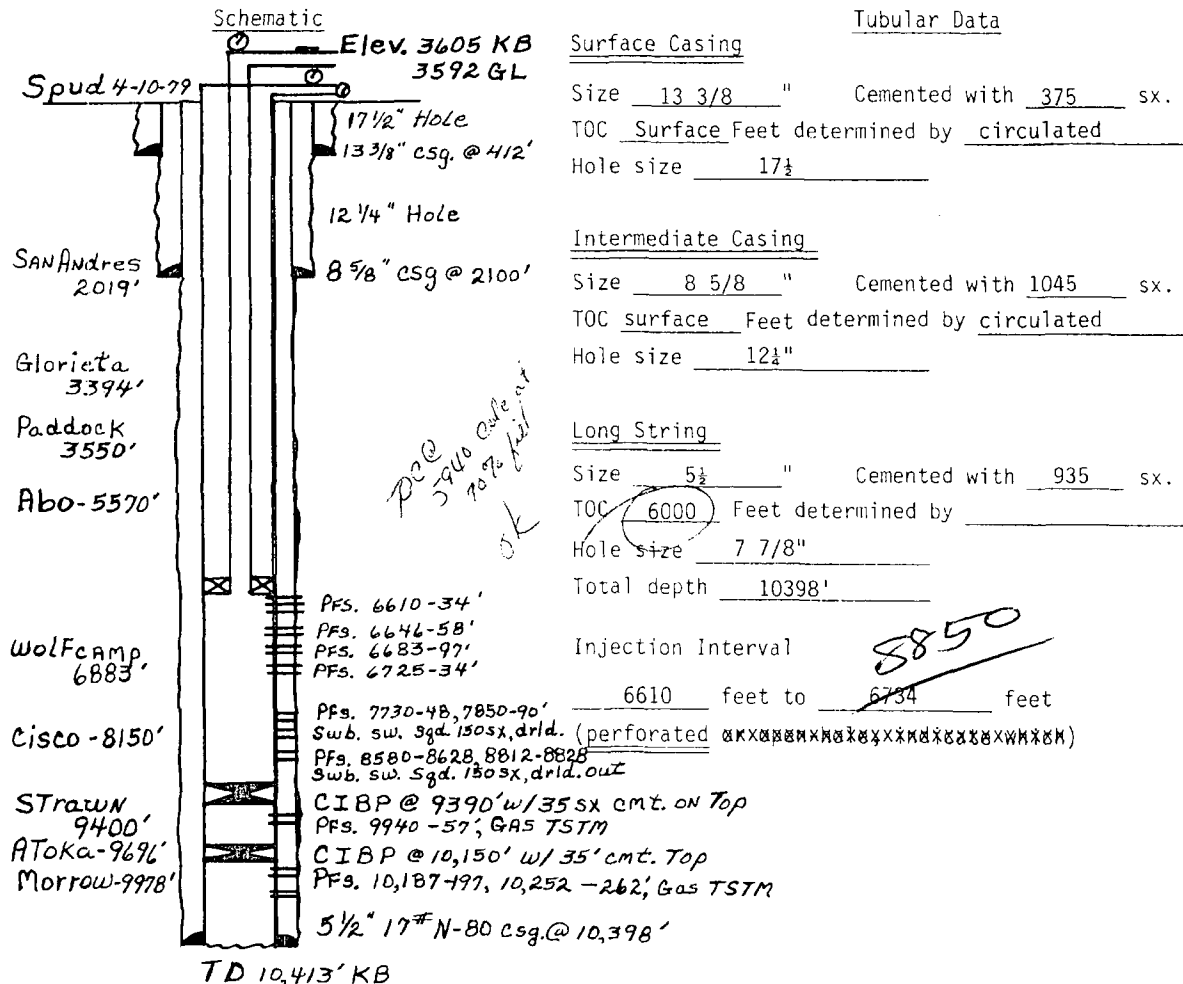 Schematic
Elev. 3605 KB
3592 GL
Spud 4-10-79
17 1/2" Hole
13 3/8" csg. @ 412'
12 1/4" Hole
SAN Andres
2019'
8 5/8" csg @ 2100'
Glorieta
3394'
Paddock
3550'
Abo-5570'
PFS. 6610-34'
PFS. 6646-58'
PFS. 6683-97'
PFS. 6725-34'
WolFcAMP
6883'
PFS. 7730-48, 7850-90'
Swb. sw. Sqd. 150sx, drld.
Cisco-8150'
PFS. 8580-8628, 8812-8828
Swb. sw. Sqd. 150sx, drld. out
CIBP @ 9390' w/35 sx cmt. on Top
STrawN
9400'
PFS. 9940-57', GAS TSTM
AToka-9696'
CIBP @ 10,150' w/ 35' cmt. Top
Morrow-9978'
PFS. 10,187-197, 10,252-262', Gas TSTM
5 1/2" 17# N-80 csg. @ 10,398'
TD 10,413' KB
5940 calc at
70% fill
ok
Tubular Data
Surface Casing
Size 13 3/8 " Cemented with 375 sx.
TOC Surface Feet determined by circulated
Hole size 17½
Intermediate Casing
Size 8 5/8 " Cemented with 1045 sx.
TOC surface Feet determined by circulated
Hole size 12¼"
Long String
Size 5½ " Cemented with 935 sx.
TOC 6000 Feet determined by
Hole size 7 7/8"
Total depth 10398'
Injection Interval
5850
6610 feet to 6734 feet
(perforated or open-hole, indicate which)